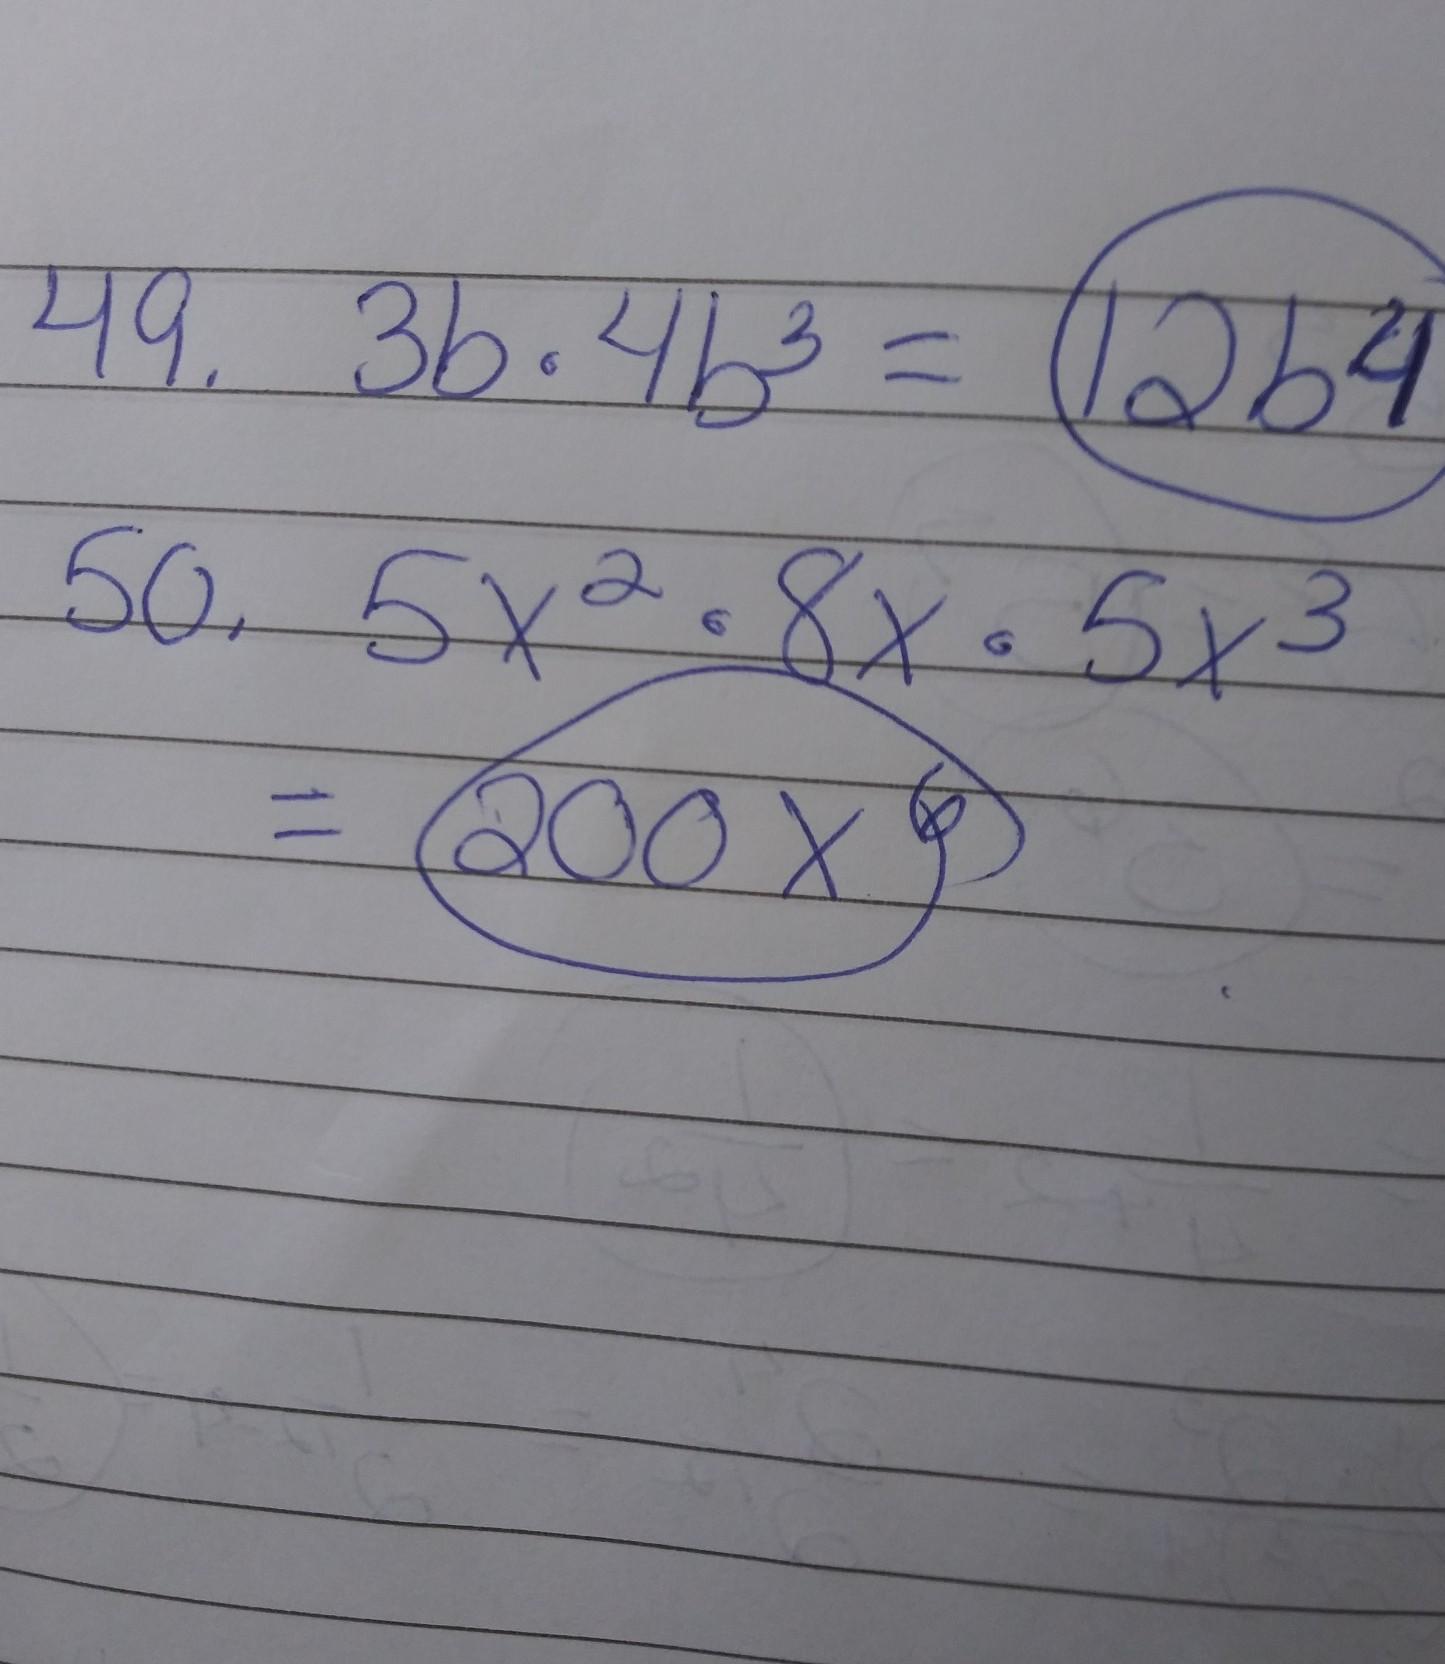 49. 3b · 4b³ = 12b⁴
50. 5x² · 8x · 5x³
= 200x⁶